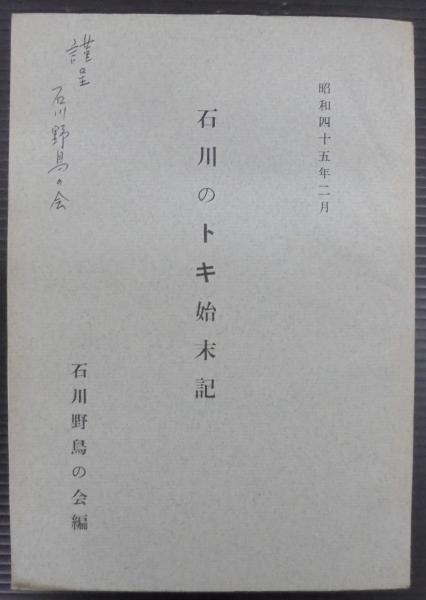 昭和四十五年二月
石川のトキ始末記
石川野鳥の会編
謹呈
石川野鳥の会